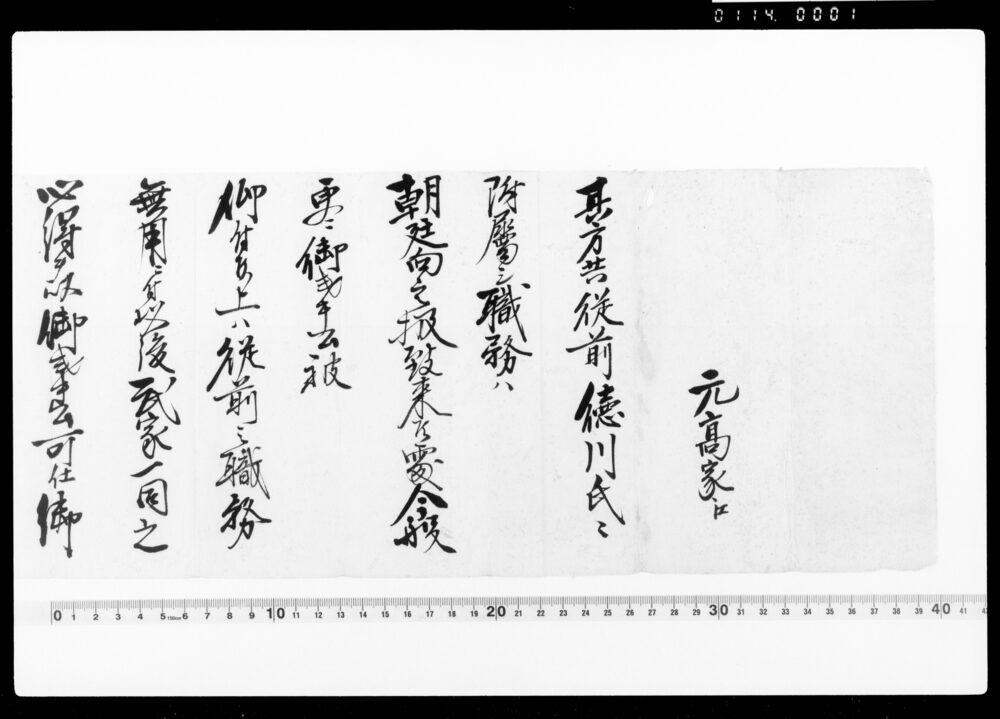 0114. 0001
元高家江
其方共従前徳川氏ニ
附屬之職務ハ
朝廷向之扱致来候處今般
更ニ御武事被
御付候上ハ従前之職務
無用ニ付以後武家一同之
心得を以御武事可仕御
0 1 2 3 4 5 150cm 6 7 8 9 10 11 12 13 14 15 16 17 18 19 20 21 22 23 24 25 26 27 28 29 30 31 32 33 34 35 36 37 38 39 40 41 42